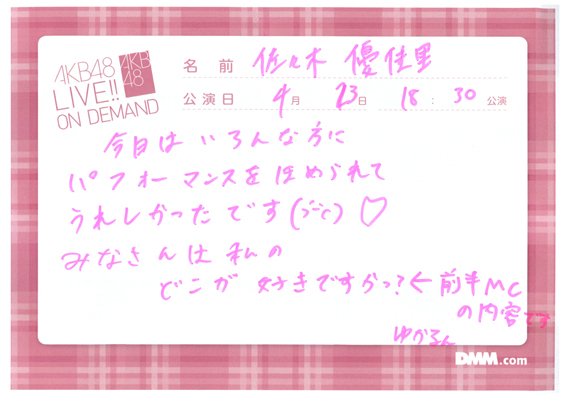 AKB48
LIVE!!
ON DEMAND
AKB
48
名前 佐々木 優佳里
公演日 4月 23日 18:30 公演
今日は いろんな方に
パフォーマンスを ほめられて
うれしかったです
みなさんは 私の
どこが 好きですかっ?←前半MC
の内容です
ゆかるん
DMM.com